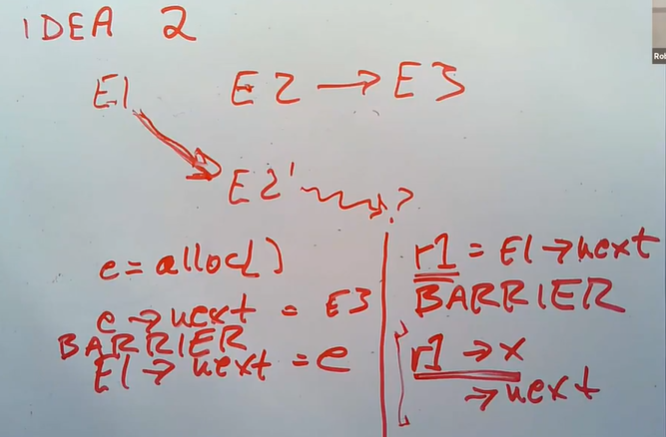 IDEA 2
E1 E2 → E3
E2' ?
e = alloc()
e → next = E3
BARRIER
E1 → next = e
r1 = E1 → next
BARRIER
r1 → x
→ next
Ro